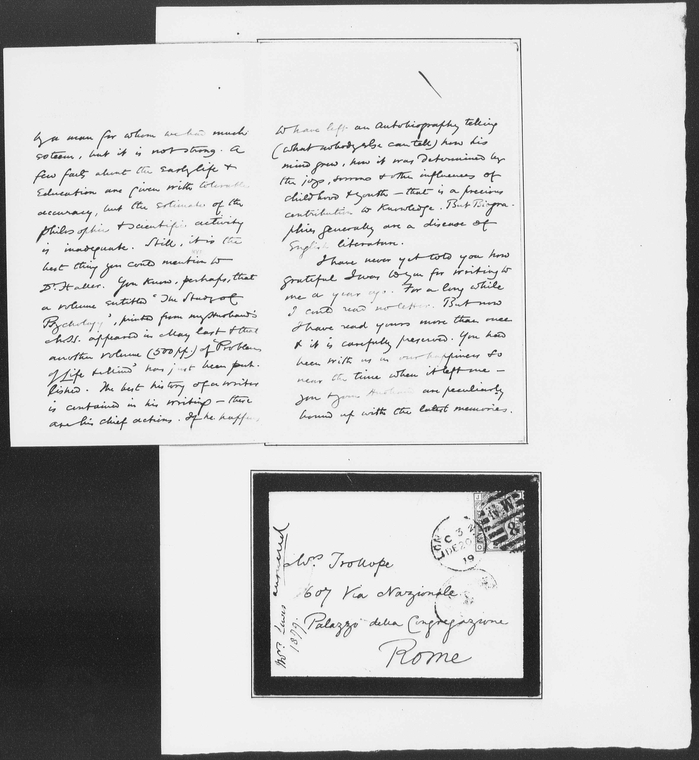 by a man for whom we had much
esteem, but it is not strong. A
few facts about the early life &
Education are given with tolerable
accuracy, but the estimate of his
philosophic & scientific activity
is inadequate. Still, it is the
best thing you could mention to
Dr. Haller. You know, perhaps, that
a volume entitled "The Study of
Psychology", printed from my husband's
M.S.S. appeared in May last & that
another volume (500 pp.) of Problems
of Life & Mind has just been pub-
lished. The best history of a writer
is contained in his writings — these
are his chief actions. If he happens
to have left an Autobiography telling
(what nobody else can tell) how his
mind grew, how it was determined by
the joys, sorrows & other influences of
childhood & youth — that is a precious
contribution to knowledge. But Biogra-
phies generally are a disease of
English literature.
I have never yet told you how
grateful I was to you for writing to
me a year ago. For a long while
I could read no letter. But now
I have read yours more than once
& it is carefully preserved. You had
been with us in our happiness so
near the time when it left me —
you & your husband are peculiarly
bound up with the latest memories.
Mrs. Lewes answered
1879.
Mrs. Trollope
607 Via Nazionale
Palazzo della Congregazione
Rome
LONDON N.W
C 3
DE 20
79
N.W
8